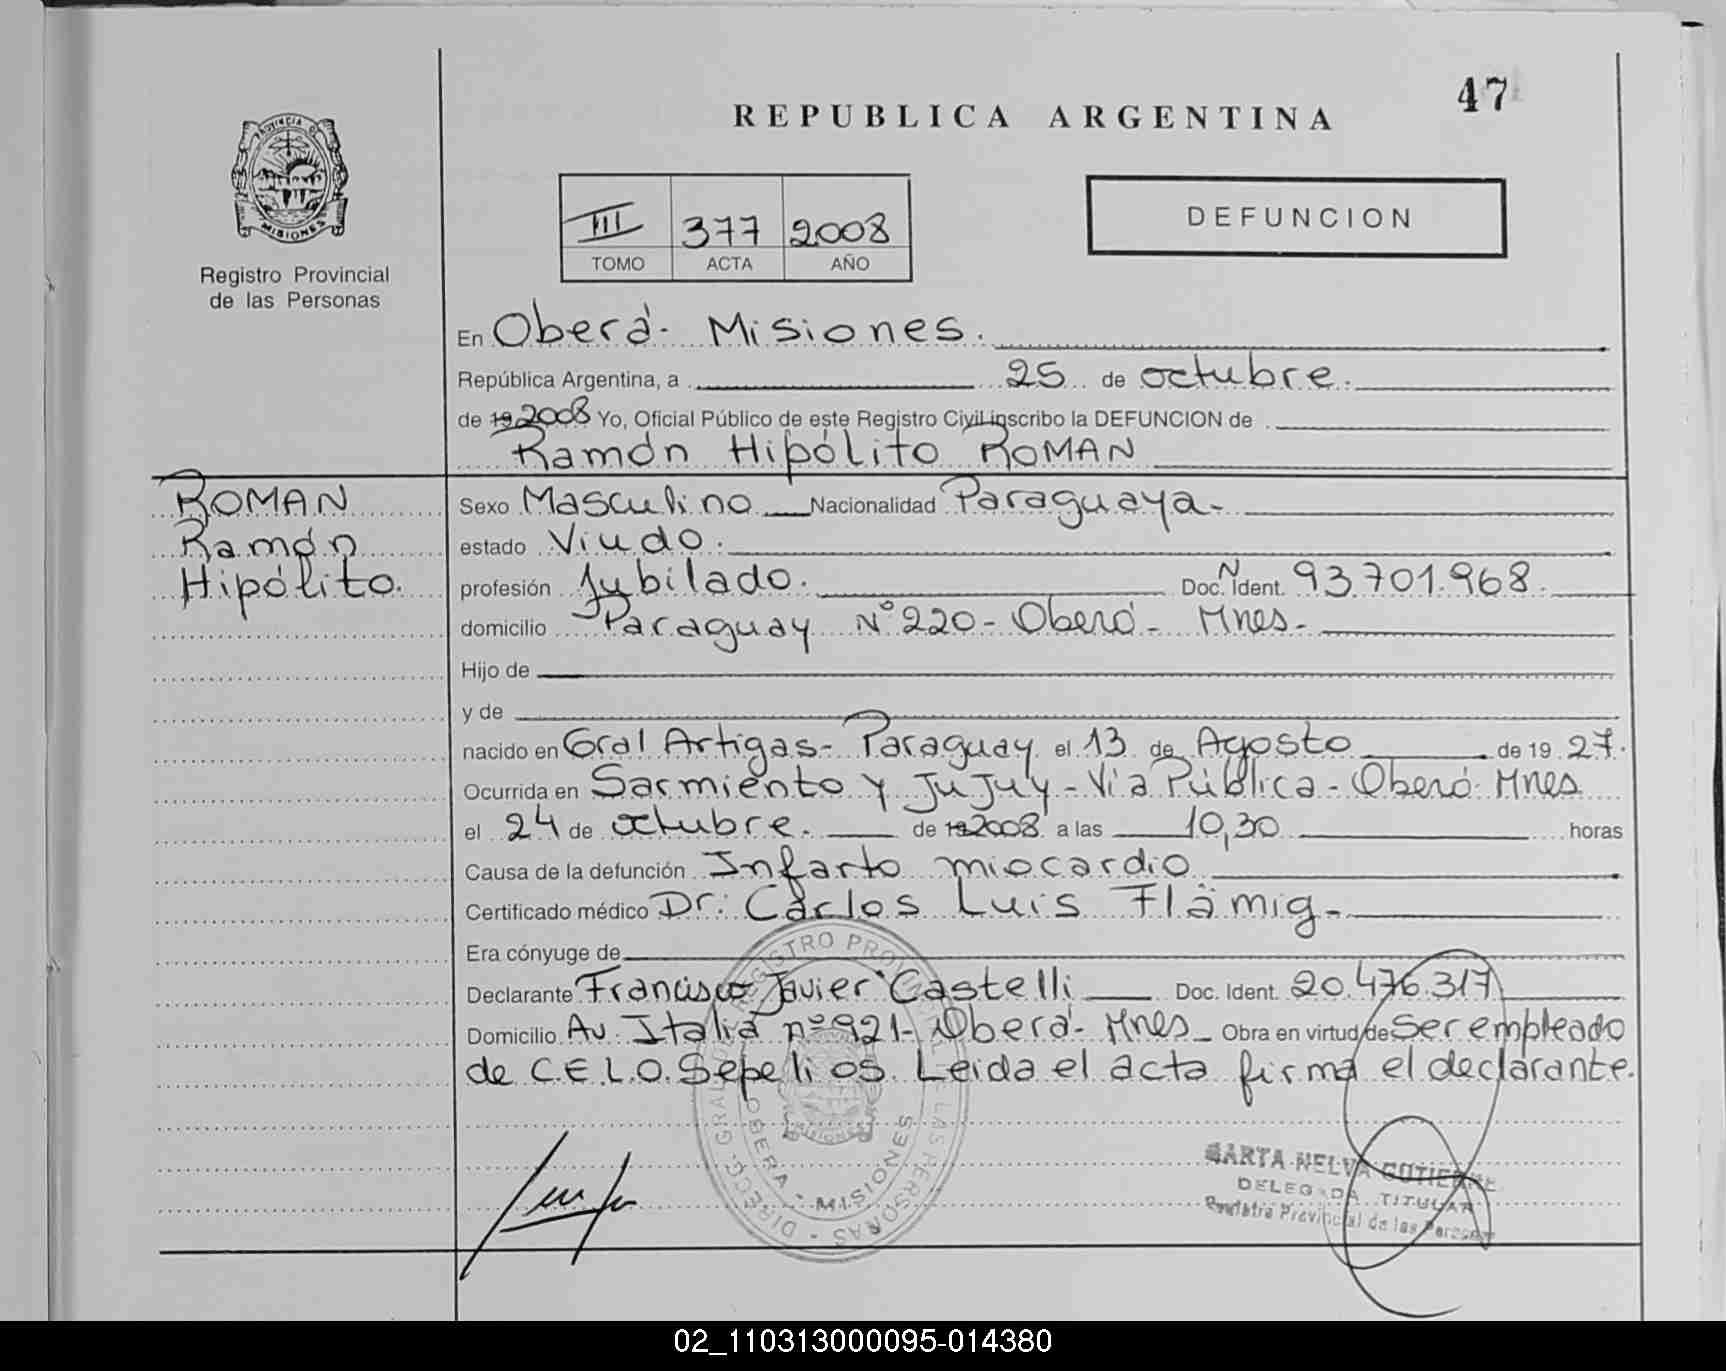 47
REPUBLICA ARGENTINA
PROVINCIA DE
MISIONES
Registro Provincial
de las Personas
III 377 2008
TOMO ACTA AÑO
DEFUNCION
En Oberá- Misiones.
República Argentina, a 25 de octubre.
de 19 2008 Yo, Oficial Público de este Registro Civil inscribo la DEFUNCION de
Ramón Hipólito ROMAN
ROMAN
Ramón
Hipólito.
Sexo Masculino Nacionalidad Paraguaya-
estado Viudo.
profesión Jubilado. Doc. N Ident. 93.701.968.
domicilio Paraguay Nº 220- Oberá- Mnes-
Hijo de
y de
nacido en Gral Artigas- Paraguay el 13 de Agosto de 19 27.
Ocurrida en Sarmiento y Jujuy- Vía Pública- Oberá- Mnes
el 24 de octubre. de 19 2008 a las 10,30 horas
Causa de la defunción Infarto miocardio
Certificado médico Dr. Carlos Luis Flämig-
Era cónyuge de
Declarante Francisco Javier Castelli Doc. Ident. 20.476.317
Domicilio Av. Italia nº 921- Oberá- Mnes- Obra en virtud de Ser empleado
de C.E.L.O. Sepelios. Leida el acta firma el declarante.
OBERA - MISIONES
MISIONES
MARTA NELVA
DELEGADA TITULAR
Registro Provincial de las Personas
02_110313000095-014380